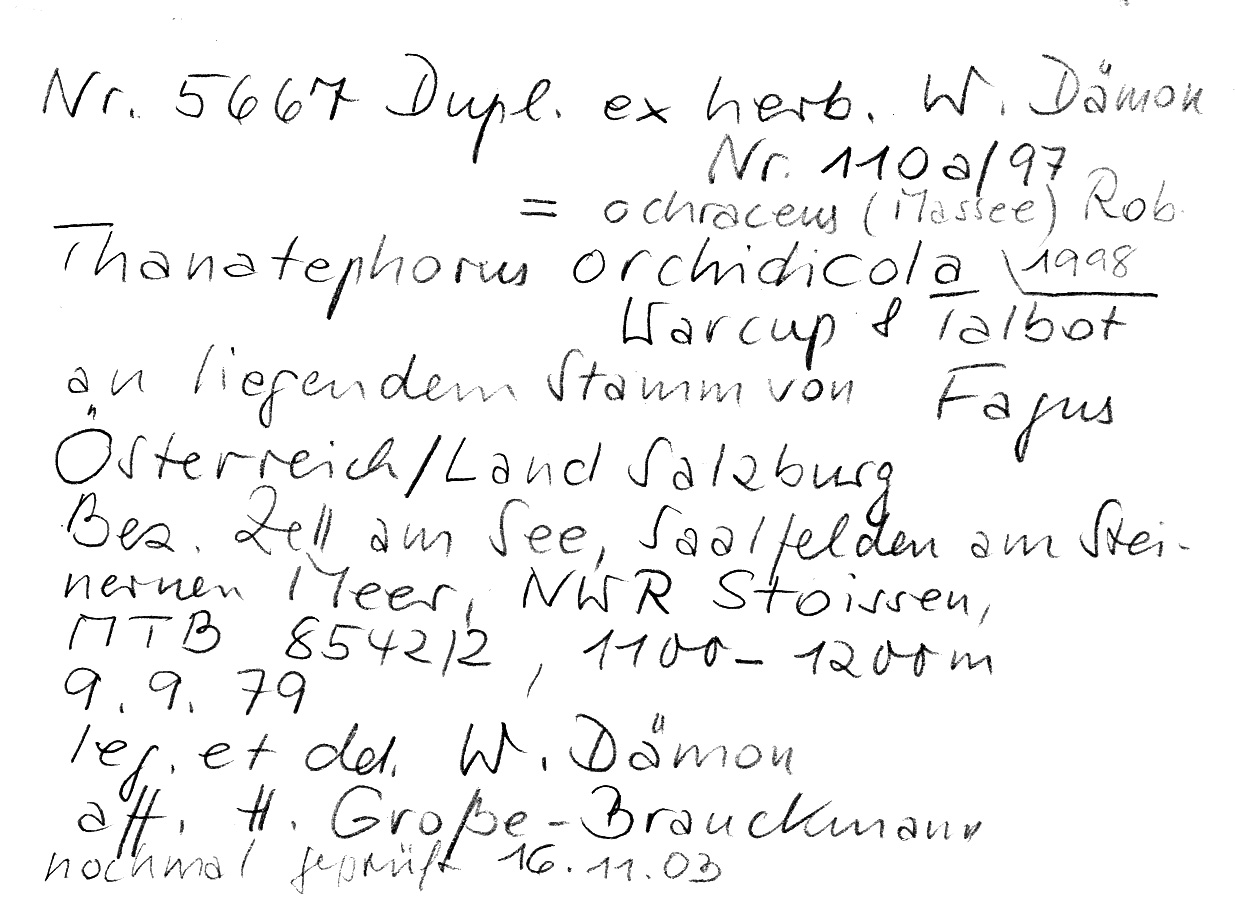 Nr. 5667 Dupl. ex herb. W. Dämon
Nr. 110a/97
= ochraceus (Massee) Rob.
Thanatephorus orchidicola 1998
Warcup & Talbot
an liegendem Stamm von Fagus
Österreich/Land Salzburg
Bez. Zell am See, Saalfelden am Stei-
nernen Meer, NWR Stoissen,
MTB 8542/2, 1100-1200m
9.9.79
leg. et det. W. Dämon
aff. H. Große-Brauckmann
nochmal geprüft 16.11.03